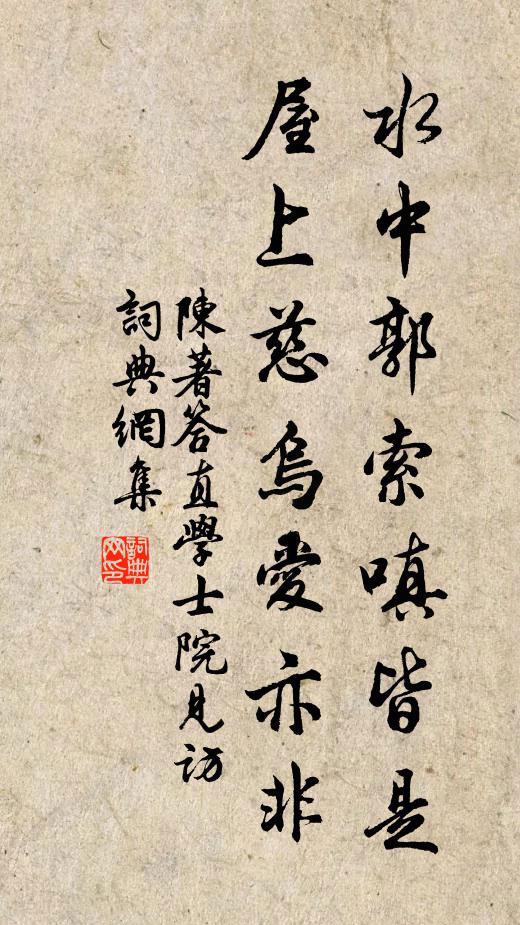 水中郭索嗔皆是
屋上慈烏愛亦非
陳著答直學士院見訪
詞典網集
詞典網印